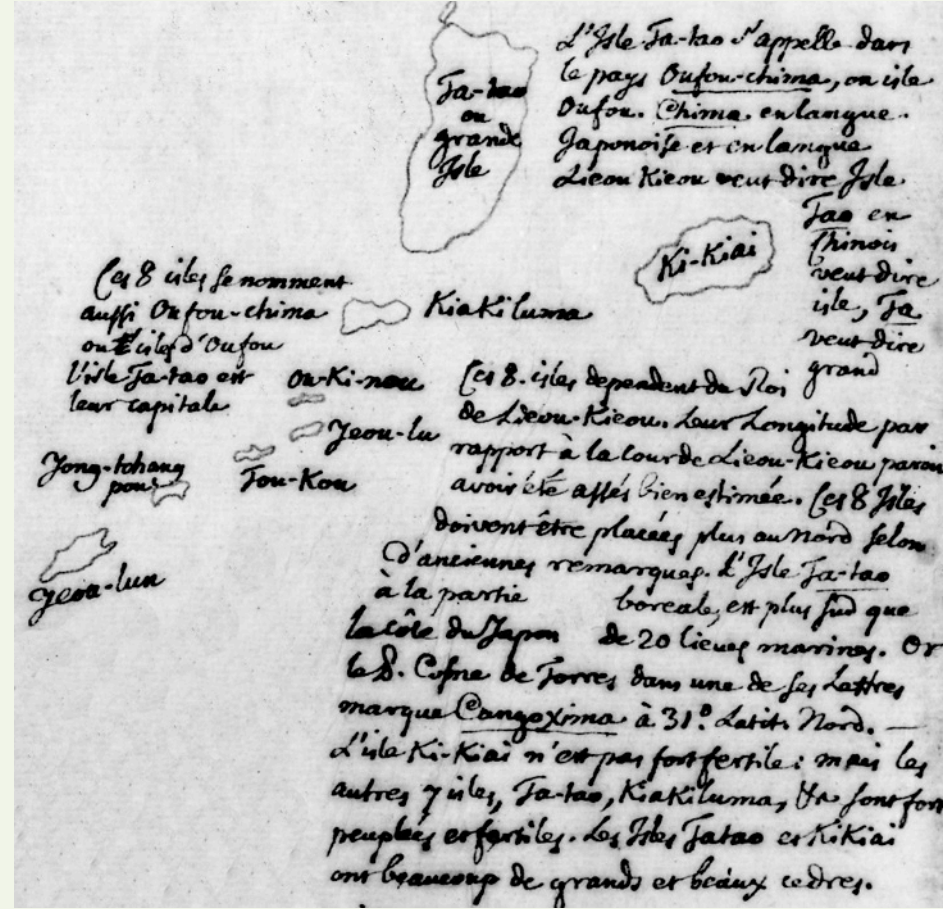 L'Isle Ta-tao s'appelle dans
le pays Oufou-chima, ou isle
Oufou. Chima en langue
Japonoise et en langue
Lieou Kieou veut dire Isle
Tao en
Chinois
veut dire
isle, Ta
veut dire
grand
Ta-tao
ou
grande
Isle
Ki-Kiai
Ces 8 isles se nomment
aussi Oufou-chima
ou isles d'Oufou
l'isle Ta-tao est
leur capitale
KiaKiluma
Ou-Ki-nou
Jeou-lu
Fou-Kou
Jong-tchang
pou
Jeou-lun
Ces 8. isles dependent du Roi
de Lieou-Kieou. Leur Longitude par
rapport à la cour de Lieou-Kieou paroit
avoir été assés bien estimée. Ces 8 Isles
doivent être placées plus au Nord selon
d'anciennes remarques. L'Isle Ta-tao
à la partie boreale, est plus sud que
la côte du Japon de 20 lieues marines. Or
le P. Cosme de Torres dans une de ses Lettres
marque Cangoxima à 31.° Latit. Nord. —
L'isle Ki-Kiai n'est pas fort fertile: mais les
autres 7 isles, Ta-tao, KiaKiluma, &c sont fort
peuplées et fertiles. Les Isles Tatao et KiKiai
ont beaucoup de grands et beaux cedres.